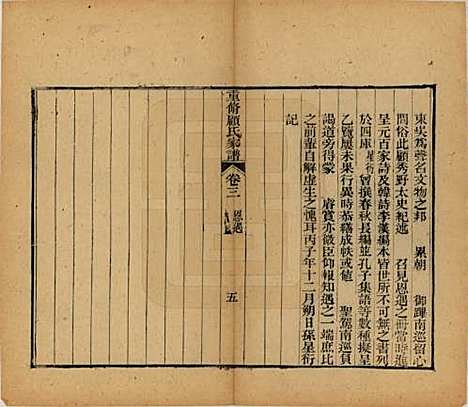 東吳爲聲名文物之邦　累朝　御蹕南巡留心
問俗此顧秀野太史紀述　召見恩遇之冊當時進
呈元百家詩及韓詩李漢編本皆世所不可無之書列
於四庫星衍曾撰春秋長編並孔子集語等數種擬呈
乙覽屢未果行異時恭繕成帙或値　聖駕南巡負
謁道旁得蒙　睿賞亦微臣仰報知遇之一端庶比
之前輩自解虛生之愧耳丙子年十二月朔日孫星衍
記
重脩顧氏家譜
卷三
恩遇
五